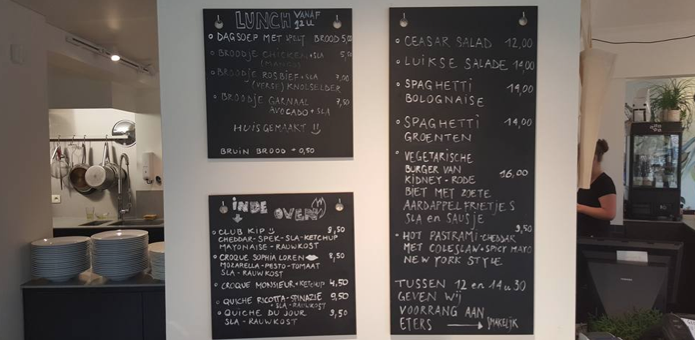 LUNCH VANAF 12U
DAGSOEP MET SPELT BROOD 5,00
BROODJE CHICKEN + SLA
BROODJE ROSBIEF + SLA 7,00
- (VERSE) KNOLSELDER
BROODJE GARNAAL 7,50
AVOCADO + SLA
HUISGEMAAKT !!
BRUIN BROOD + 0,50
INDE OVEN
CLUB KIP 9,50
CHEDDAR-SPEK-SLA-KETCHUP
MAYONAISE-RAUWKOST
CROQUE SOPHIA LOREN 8,50
MOZARELLA-PESTO-TOMAAT
SLA-RAUWKOST
CROQUE MONSIEUR + KETCHUP 4,50
QUICHE RICOTTA-SPINAZIE 9,50
+ SLA-RAUWKOST
QUICHE DU JOUR 9,50
SLA-RAUWKOST
CEASAR SALAD 12,00
LUIKSE SALADE 14,00
SPAGHETTI 14,00
BOLOGNAISE
SPAGHETTI 14,00
GROENTEN
VEGETARISCHE
BURGER VAN 16,00
KIDNEY-RODE
BIET MET ZOETE
AARDAPPELFRIETJES
SLA en SAUSJE
HOT PASTRAMI-CHEDDAR 9,50
MET COLESLAW + SPICY MAYO
NEW YORK STYLE
TUSSEN 12 en 14u30
GEVEN WIJ
VOORRANG AAN
ETERS → SMAKELIJK